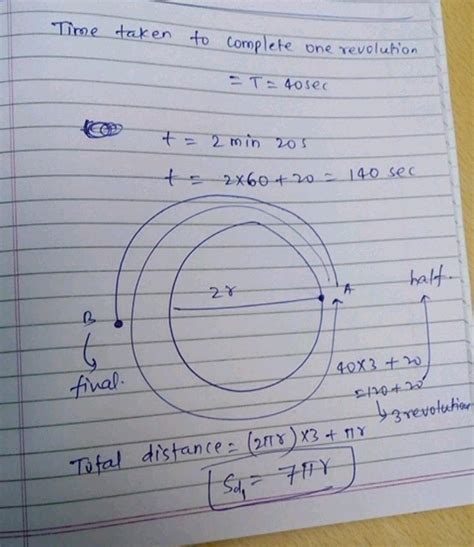 Time taken to complete one revolution
= T = 40sec
t = 2 min 20s
t = 2x60+20 = 140 sec
2r
A
B
final.
half.
40x3 + 20
=120+20
3revolution
Total distance = (2πr)x3 + πr
Sd₁ = 7πr